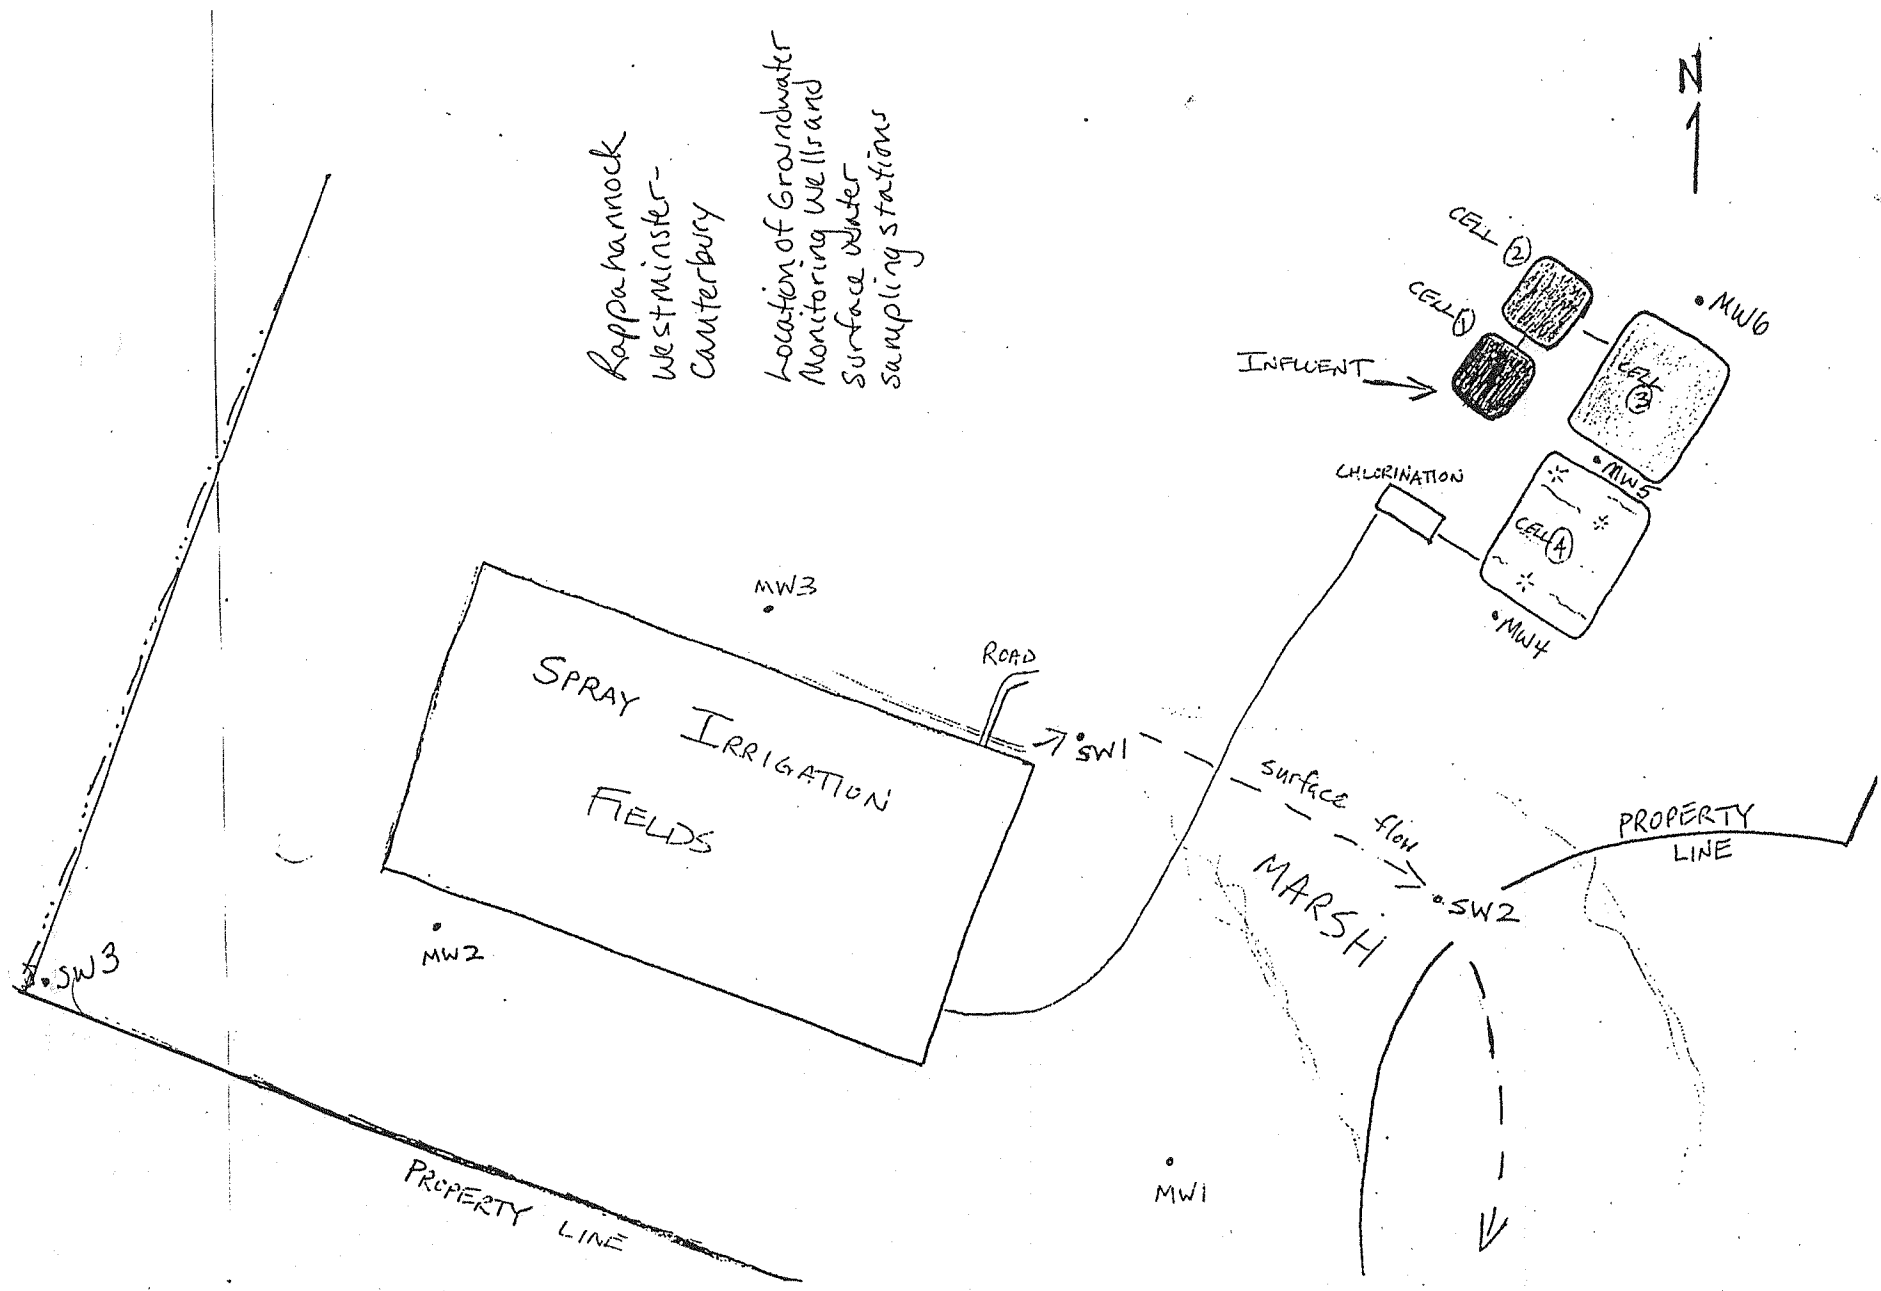 Rappahannock
Westminster-
Canterbury
Location of Groundwater
Monitoring Wells and
Surface water
sampling stations
N
CELL 2
CELL 1
MW6
INFLUENT
CELL
3
CHLORINATION
MW5
CELL 4
MW4
MW3
ROAD
SPRAY IRRIGATION
FIELDS
SW1
surface flow
PROPERTY
LINE
MARSH
SW2
MW2
SW3
MW1
PROPERTY LINE